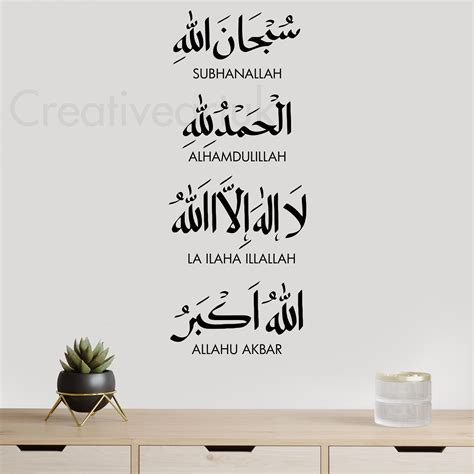 سُبْحَانَ اللهِ
SUBHANALLAH
Creativeartuk
الْحَمْدُ لِلّٰهِ
ALHAMDULILLAH
لَا إِلٰهَ إِلَّا اللهُ
LA ILAHA ILLALLAH
اللهُ أَكْبَرُ
ALLAHU AKBAR